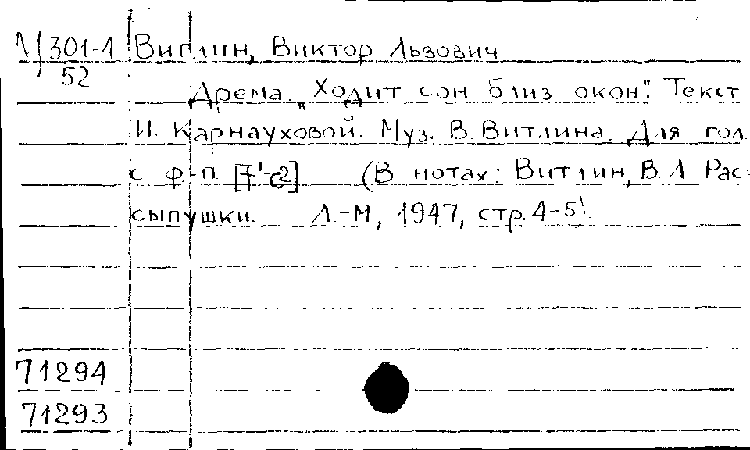 Ц 301-1 Витлин, Виктор Львович
52
Дрема. „Ходит сон близ окон". Текст
И. Карнауховой. Муз. В. Витлина. Для гол.
с ф-п. (В нотах: Витлин, В. Л Рас-
сыпушки. Л.-М, 1947, стр. 4-5).
71294
71293